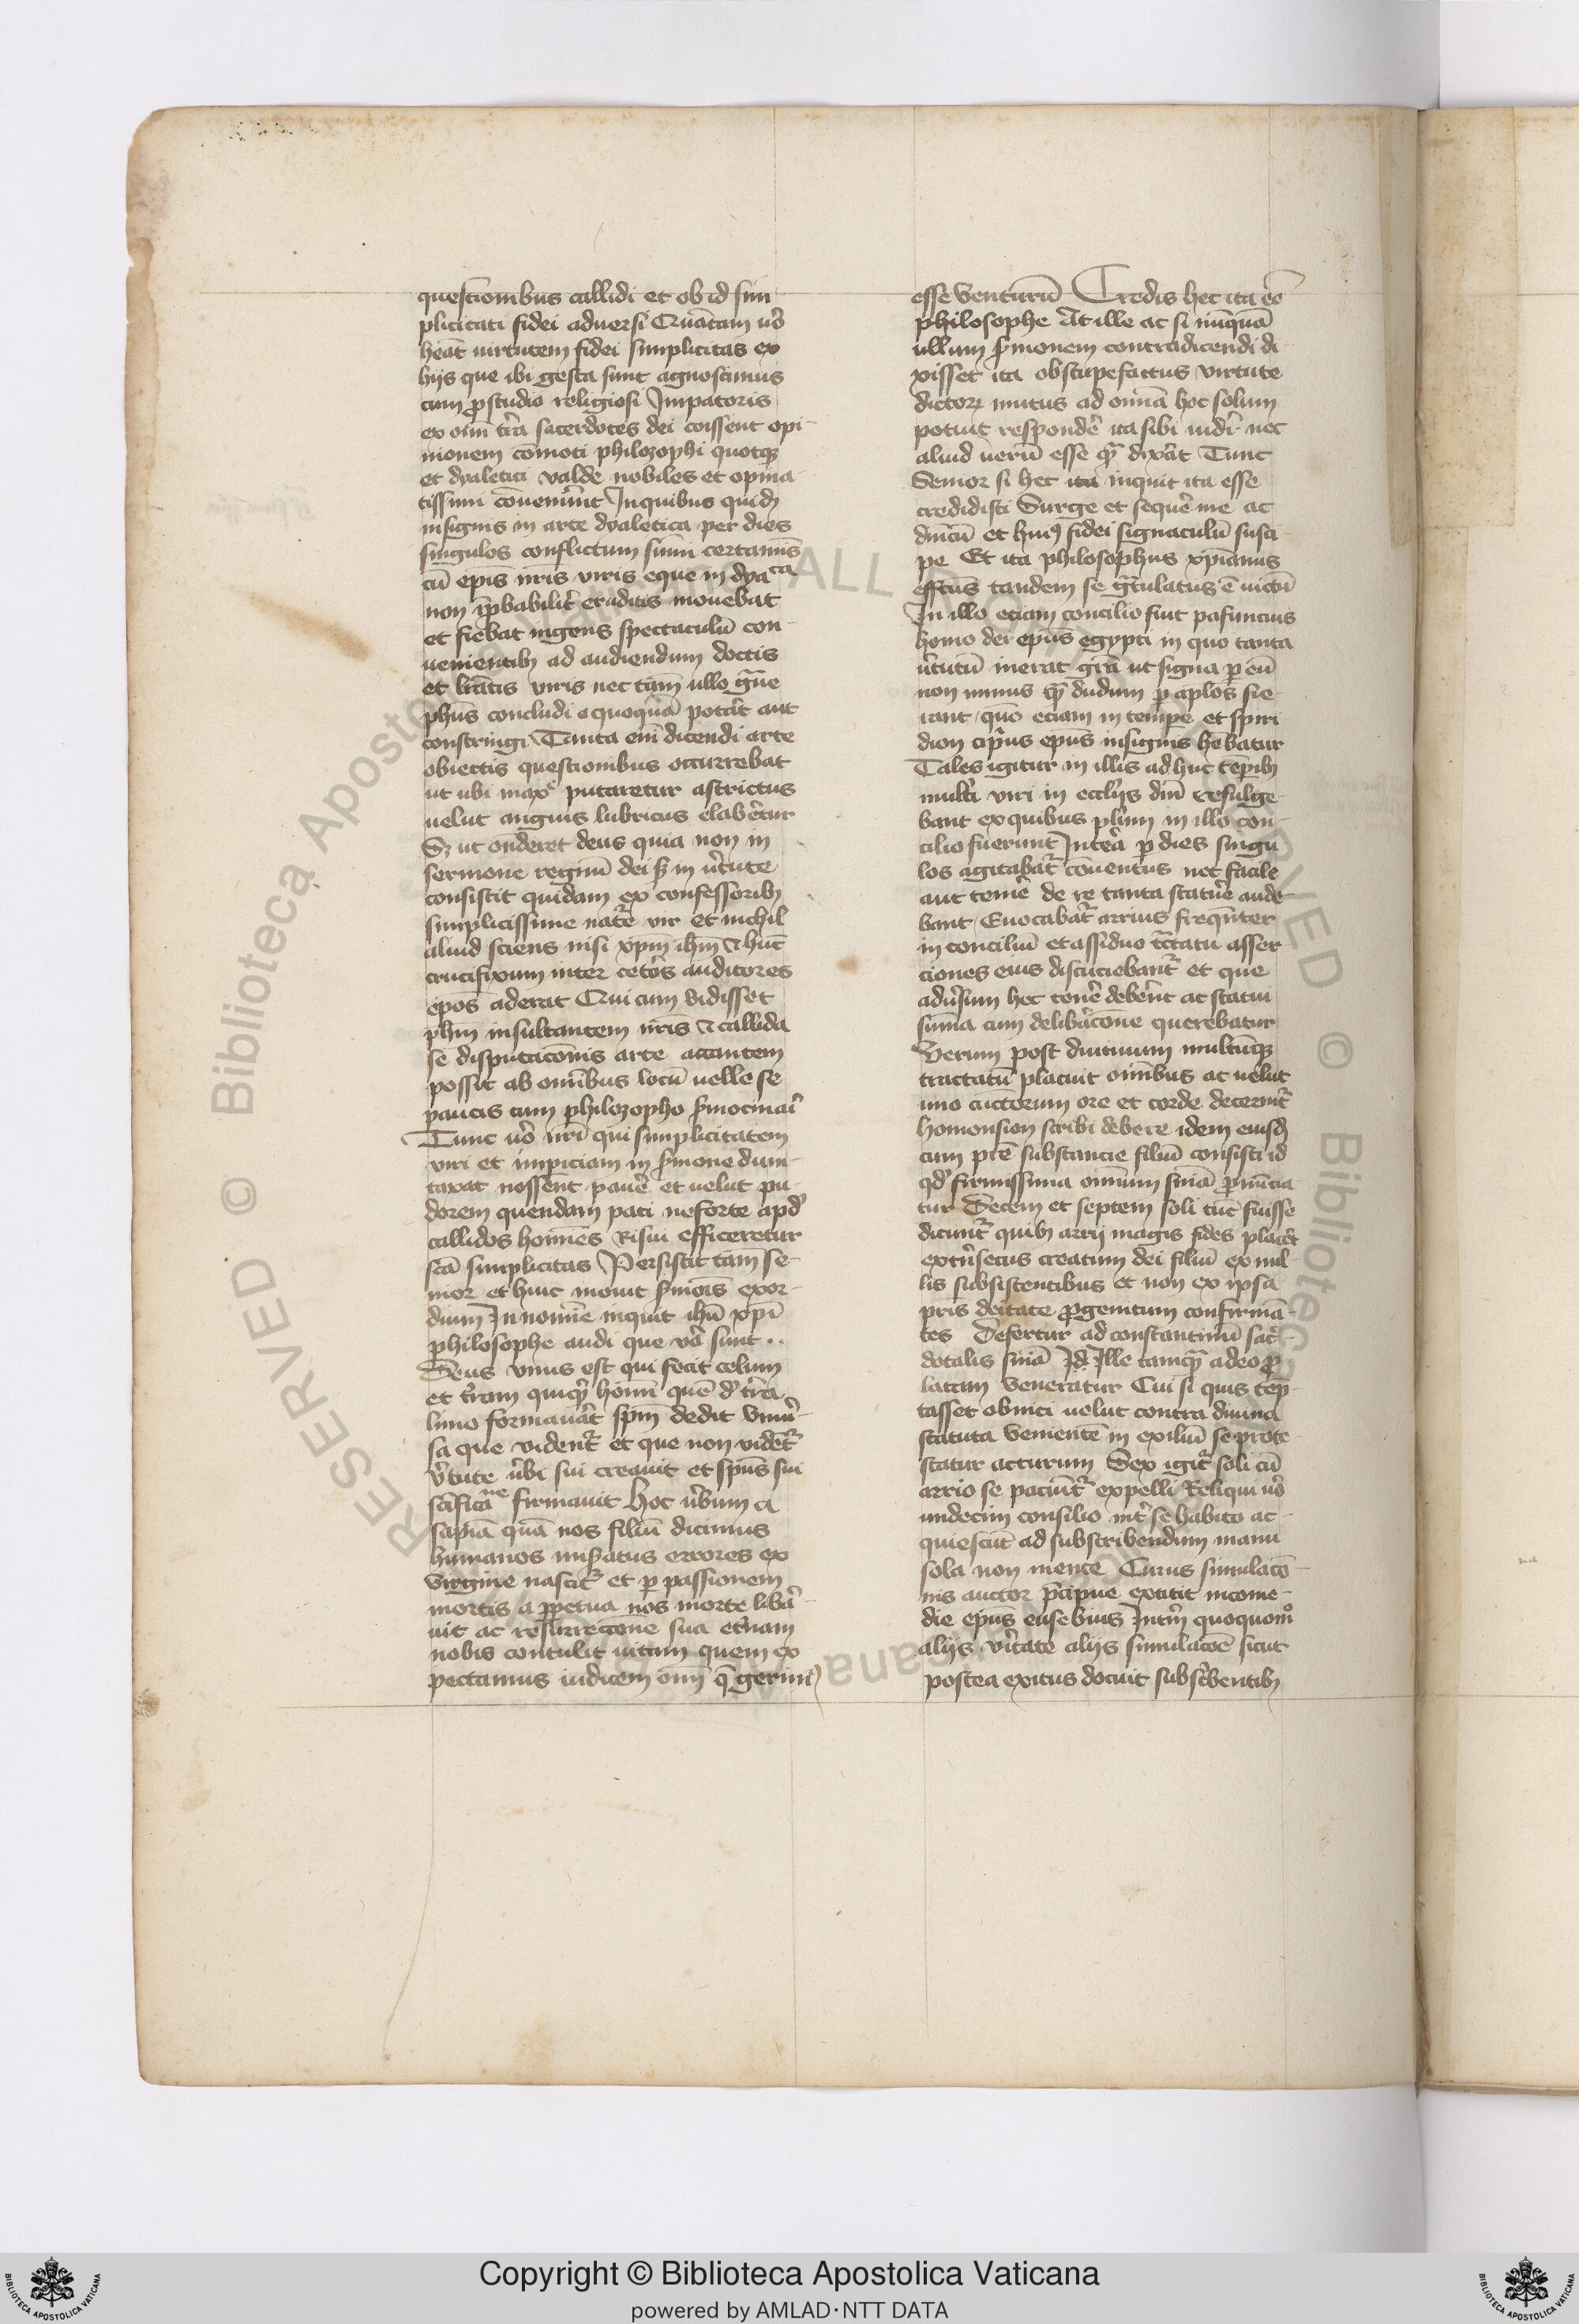 questionibus callidi et ob id sim
plicitati fidei aduersi Quātam uo̾
heāt uirtutem fidei simplicitas ex
hijs que ibi gesta sunt agnoscimus
cum ꝓ studio religiosi Imꝑatoris
ex oīm t̾ra sacerdotes dei coissent opi-
nionem comoti philozophi quotqꝫ
et dyaletici valde nobiles et opina-
tissimi cōuenīnt In quibus quidꝫ
insignis in arte dyaletica per dies
singulos conflictum sūmi certaminis
cū epīs nr̄is viris eque in dyaca
non īꝓbabilit̾ eruditis mouebat
et fiebat ingens spectaculū con-
uenientibꝫ ad audiendum doctis
et lrātis viris nec tam̄ ullo gn̄e
phūs concludi a quoquā potāt aut
constringi Tanta em̄ dicendi arte
obiectis questionibus occurrebat
ut ubi maxe putaretur astrictus
uelut anguis lubricus elabet̾ur
Sꝫ ut on̄deret deus quia non in
sermone regnū dei sꝫ in u̾tute
consistit quidam ex confessoribꝫ
simplicissime nat̾e vir et nichil
aliud sciens nisi xp̄m ih̄m ⁊ hūc
crucifixum inter cet̾os auditores
ep̄os aderat Qui cum vidisset
ph̄m insultantem nr̄is ⁊ callida
se disputac̄onis arte iactantem
possit ab omībus locū uelle se
paucis cum philozopho s̾mocinai̾
Tunc uo̾ nr̄i qui simplicitatem
viri et impiciam in s̾mone dum-
taxat nossent pauē et uelut pu-
dorem quendam pati ne forte apd̾
callidos homines Risui efficeretur
scā simplicitas Persistit tam̄ se-
nior et huic mouit s̾mois exor-
dium In nomīe inquit ih̄u xp̄i
philosophe audi que vo̾ sunt ..
Deus vnus est qui fecit celum
et t̾ram quiqꝫ homī quē d̾ t̾ra
limo formauāt sp̄m dedit vniu̾-
sa que vident̾ et que non vidēt̾
v̾tute u̾bi sui creauit et spūs sui
scīficane firmauit Hoc u̾bum a
sapīa quā nos filiū dicimus
humanos mis̾atus errores ex
virgine nascit̾ et ꝑ passionem
mortis a ꝑpetua nos morte liba̾-
uit ac resurreccōne sua et̾nam
nobis contulit uitam quem ex
pectamus iudicem om̄ q̄ gerimꝰ
esse venturū Credis hec ita eē
philosophe At ille ac si nūquā
ullum s̾monem contradicendi di-
xisset ita obstupefactus virtute
dictoꝝ mutus ad omīa hoc solum
potuit respondē ita sibi uidi̾ nec
aliud uerū esse qꝫ dixāt Tunc
Senior si hec ita inquit ita esse
credidisti Surge et sequē me ac
dn̄icū et huiꝰ fidei signaculū susci-
pe Et ita philosophus xp̄ianus
effcūs tandem se gr̄atulatus ē uictū
In illo etiam concilio fuit pafuncius
homo dei epūs egypti in quo tanta
u̾tutū inerat grā ut signa ꝑ eū
non minus qꝫ dudum ꝑ ap̄los fie-
rant quo eciam in tempe et spiri
dion cipr̾us epūs insignis hebatur
Tales igitur in illis ad huc tep̄ibꝫ
multi viri in eccl̄ijs dn̄i refulge-
bant ex quibus plīm in illo con-
cilio fuerunt Int̾ea ꝑ dies singu
los agitabat̾ cōuentus nec facile
aut temē de re tanta statuē aude-
bant Euocabat̾ arrius freqūter
in conciliū et assiduo t̾ctatu asser
ciones eius discuciebant̾ et que
adu̾sum hec tenē debēnt ac statui
sūma cum delibac̄one querebatur
Verum post diutinum multūqꝫ
tractatū placuit omībus ac uelut
uno cūctorum ore et corde decernit̾
homousion scribi debere idem eiusdꝫ
cum pr̄e substancie filiū consisti id
qd̾ firmissima omium snīa ꝓnūcia-
tur Decem et septem soli tūc fuisse
dicunt̾ quibꝫ arrij magis fides placēt
extr̾nsecus creatum dei filiū ex nul-
lis subsistentibus et non ex ipsa
pr̄is deitate ꝓgenitum confirmā-
tes Defertur ad constantinū sac̾-
dotalis snīa Id Ille tamqꝫ a deo ꝓ
latam veneratur Cui si quis tēp-
tasset obniti uelut contra diuina
statuta venientē in exiliū se prote-
statur acturum Sex igit̾ soli cū
arrio se paciūt̾ expelli Reliqui uo̾
undecim consilio int̾ se habito ac-
quiescūt ad subscribendum manu
sola non mente Cuius simulacō-
nis auctor p̄cipue extitit nicome-
die epūs eusebius Int̾im quoquomo
alijs v̾itate alijs simulacōe sicut
postea exitus docuit subsc̾bentibꝫ
Copyright © Biblioteca Apostolica Vaticana
powered by AMLAD·NTT DATA